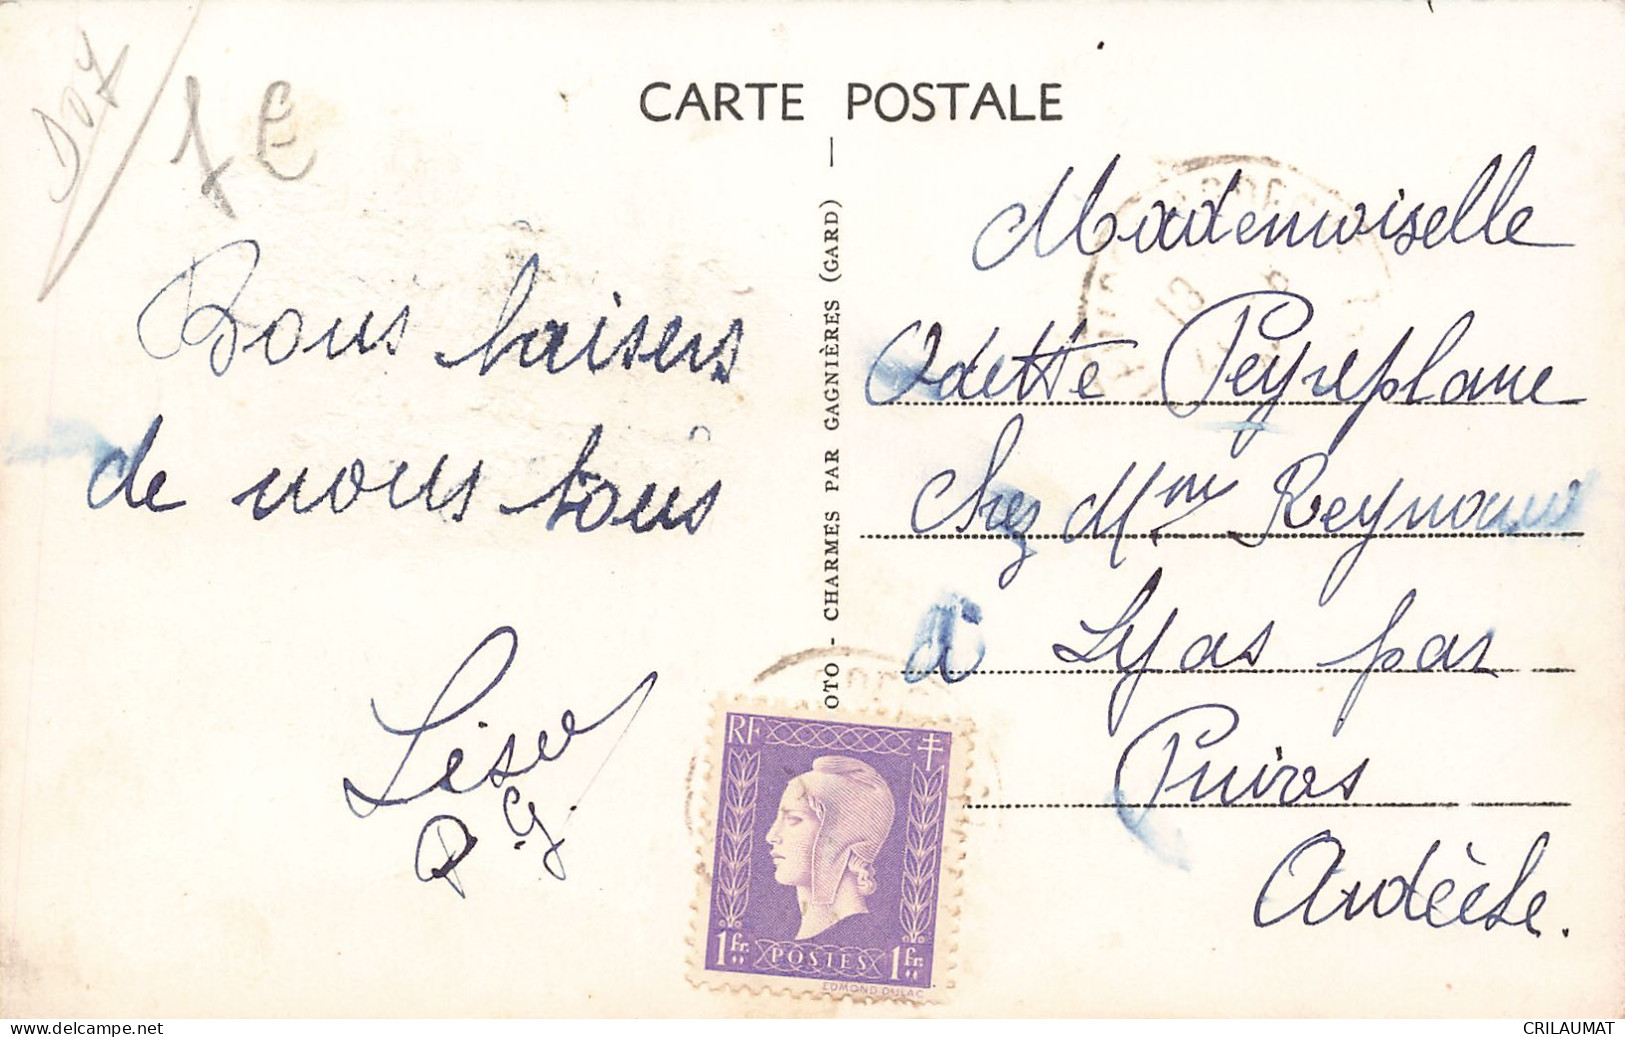 D07
1 €
CARTE POSTALE
Bons baisers
de nous tous
P. G.
OTO - CHARMES PAR GAGNIÈRES (GARD)
Mademoiselle
Odette Peyreplane
Chez Mme Reynaud
à Lyas par
Privas
Ardèche.
RF
1 fr. POSTES 1 fr.
EDMOND DULAC
www.delcampe.net
CRILAUMAT